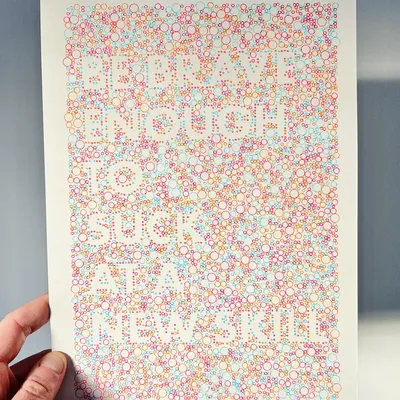 BE BRAVE
ENOUGH
TO
SUCK
AT A
NEW SKILL